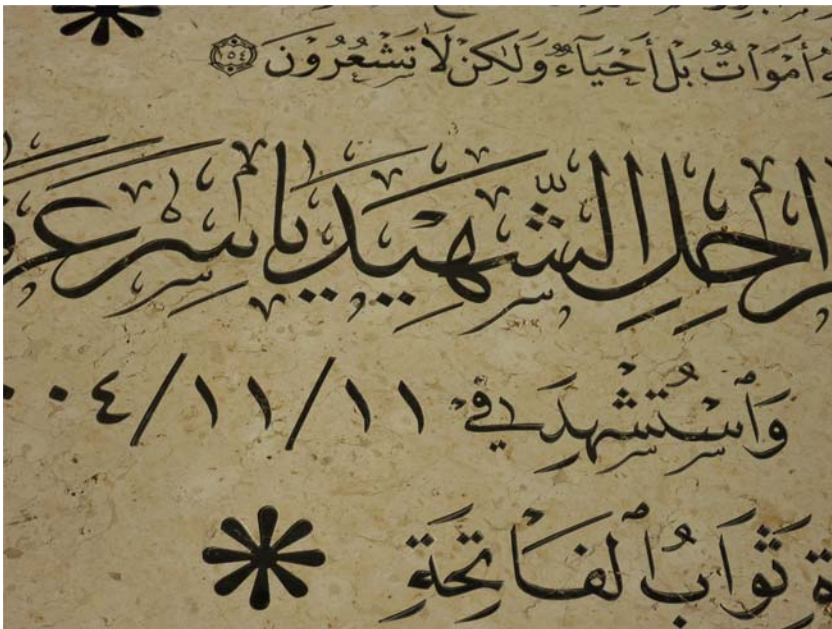 أَمْوَاتٌ بَلْ أَحْيَآءٌ وَلَٰكِن لَّا تَشْعُرُونَ ١٥٤
الشَّهِيْدِ يَاسِرْ
وَٱسْتُشْهِدَ فِيْ ١١/١١/
ثَوَابُ ٱلفَاتِحَةِ